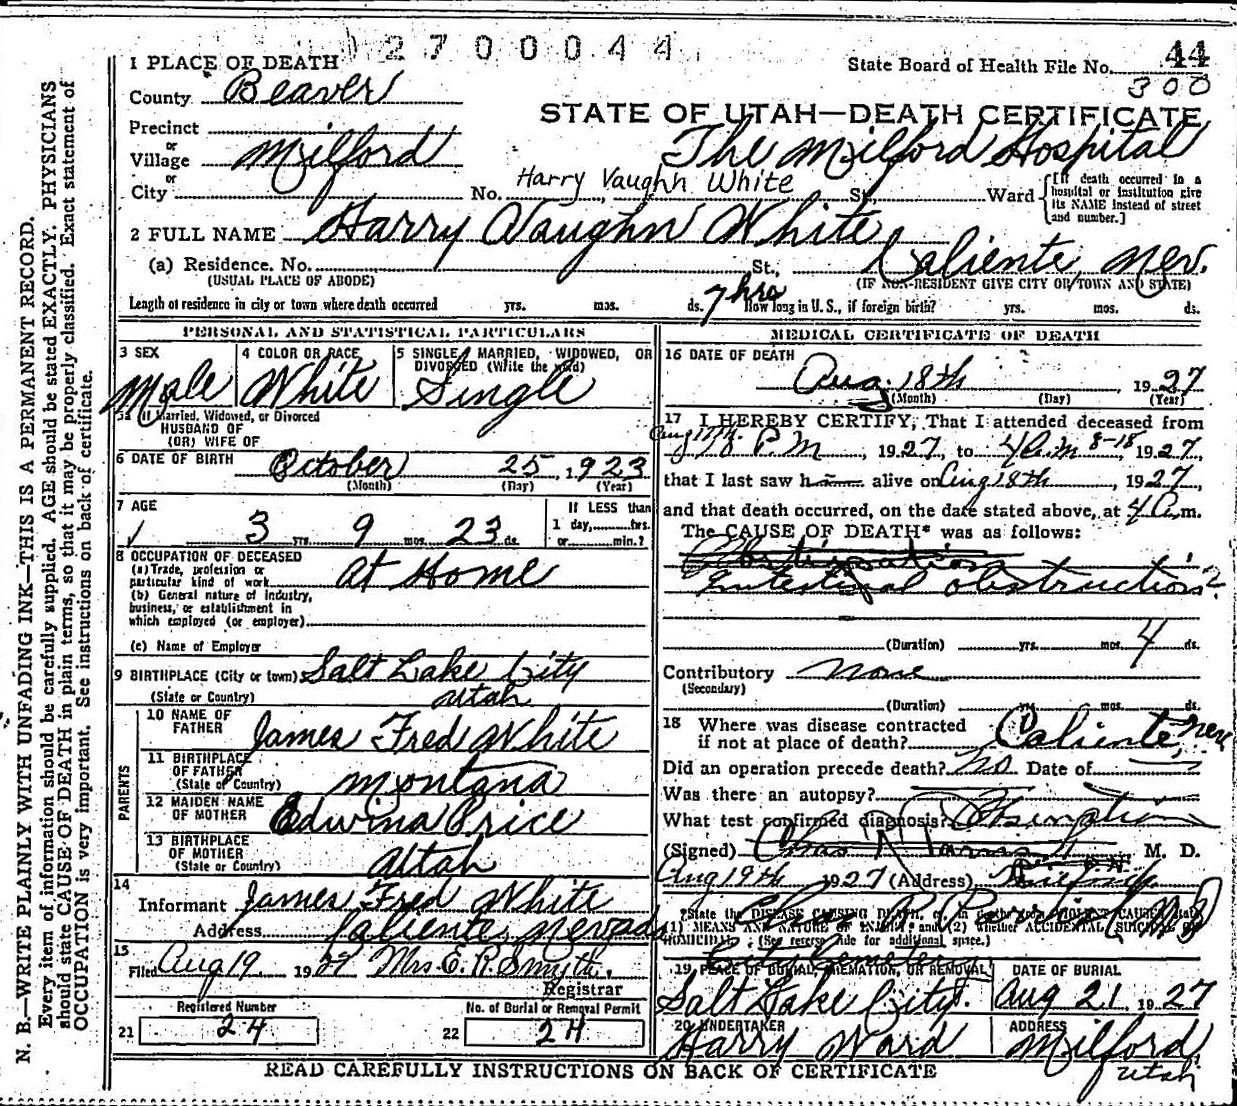 2700044
1 PLACE OF DEATH
State Board of Health File No. 44
300
County Beaver
STATE OF UTAH—DEATH CERTIFICATE
Precinct
or
Village Milford
The Milford Hospital
or
City No. Harry Vaughn White St., Ward [If death occurred in a hospital or institution give its NAME instead of street and number.]
2 FULL NAME Harry Vaughn White
(a) Residence. No. St., Caliente, Nev.
(USUAL PLACE OF ABODE) (IF NON-RESIDENT GIVE CITY OR TOWN AND STATE)
Length of residence in city or town where death occurred yrs. mos. ds. 7 hrs How long in U. S., if foreign birth? yrs. mos. ds.
PERSONAL AND STATISTICAL PARTICULARS
3 SEX Male
4 COLOR OR RACE White
5 SINGLE, MARRIED, WIDOWED, OR DIVORCED (Write the word) Single
5a If Married, Widowed, or Divorced
HUSBAND OF
(OR) WIFE OF
6 DATE OF BIRTH October 25, 1923
(Month) (Day) (Year)
7 AGE 3 yrs. 9 mos. 23 ds.
If LESS than
1 day, hrs.
or min.?
8 OCCUPATION OF DECEASED
(a) Trade, profession or
particular kind of work At Home
(b) General nature of industry,
business, or establishment in
which employed (or employer)
(c) Name of Employer
9 BIRTHPLACE (City or town) Salt Lake City
(State or Country) Utah
PARENTS
10 NAME OF
FATHER James Fred White
11 BIRTHPLACE
OF FATHER
(State or Country) Montana
12 MAIDEN NAME
OF MOTHER Edwina Price
13 BIRTHPLACE
OF MOTHER
(State or Country) Utah
14
Informant James Fred White
Address Caliente Nevada
15
Filed Aug 19 1927 Mrs. E. R. Smyth.
Registrar
Registered Number
21 24
No. of Burial or Removal Permit
22 24
MEDICAL CERTIFICATE OF DEATH
16 DATE OF DEATH
Aug. 18th, 1927
(Month) (Day) (Year)
17 I HEREBY CERTIFY, That I attended deceased from
Aug 17th P.M, 1927, to 4 A.M 8-18, 1927,
that I last saw h alive on Aug 18th, 1927,
and that death occurred, on the date stated above, at 4 A.m.
The CAUSE OF DEATH* was as follows:
Intestinal obstruction?
(Duration) yrs. mos. 4 ds.
Contributory none
(Secondary)
(Duration) yrs. mos. ds.
18 Where was disease contracted
if not at place of death? Caliente, Nev
Did an operation precede death? No Date of
Was there an autopsy?
What test confirmed diagnosis?
(Signed) M. D.
Aug 19th 1927 (Address)
*State the DISEASE CAUSING DEATH, or, in deaths from VIOLENT CAUSES, state
(1) MEANS AND NATURE OF INJURY; and (2) whether ACCIDENTAL, SUICIDAL or
HOMICIDAL. (See reverse side for additional space.)
City Cemetery
19 PLACE OF BURIAL, CREMATION, OR REMOVAL
Salt Lake City.
DATE OF BURIAL
Aug 21 1927
20 UNDERTAKER
Harry Ward
ADDRESS
Milford,
Utah
READ CAREFULLY INSTRUCTIONS ON BACK OF CERTIFICATE
N. B.—WRITE PLAINLY WITH UNFADING INK—THIS IS A PERMANENT RECORD.
Every item of information should be carefully supplied. AGE should be stated EXACTLY. PHYSICIANS
should state CAUSE OF DEATH in plain terms, so that it may be properly classified. Exact statement of
OCCUPATION is very important. See instructions on back of certificate.